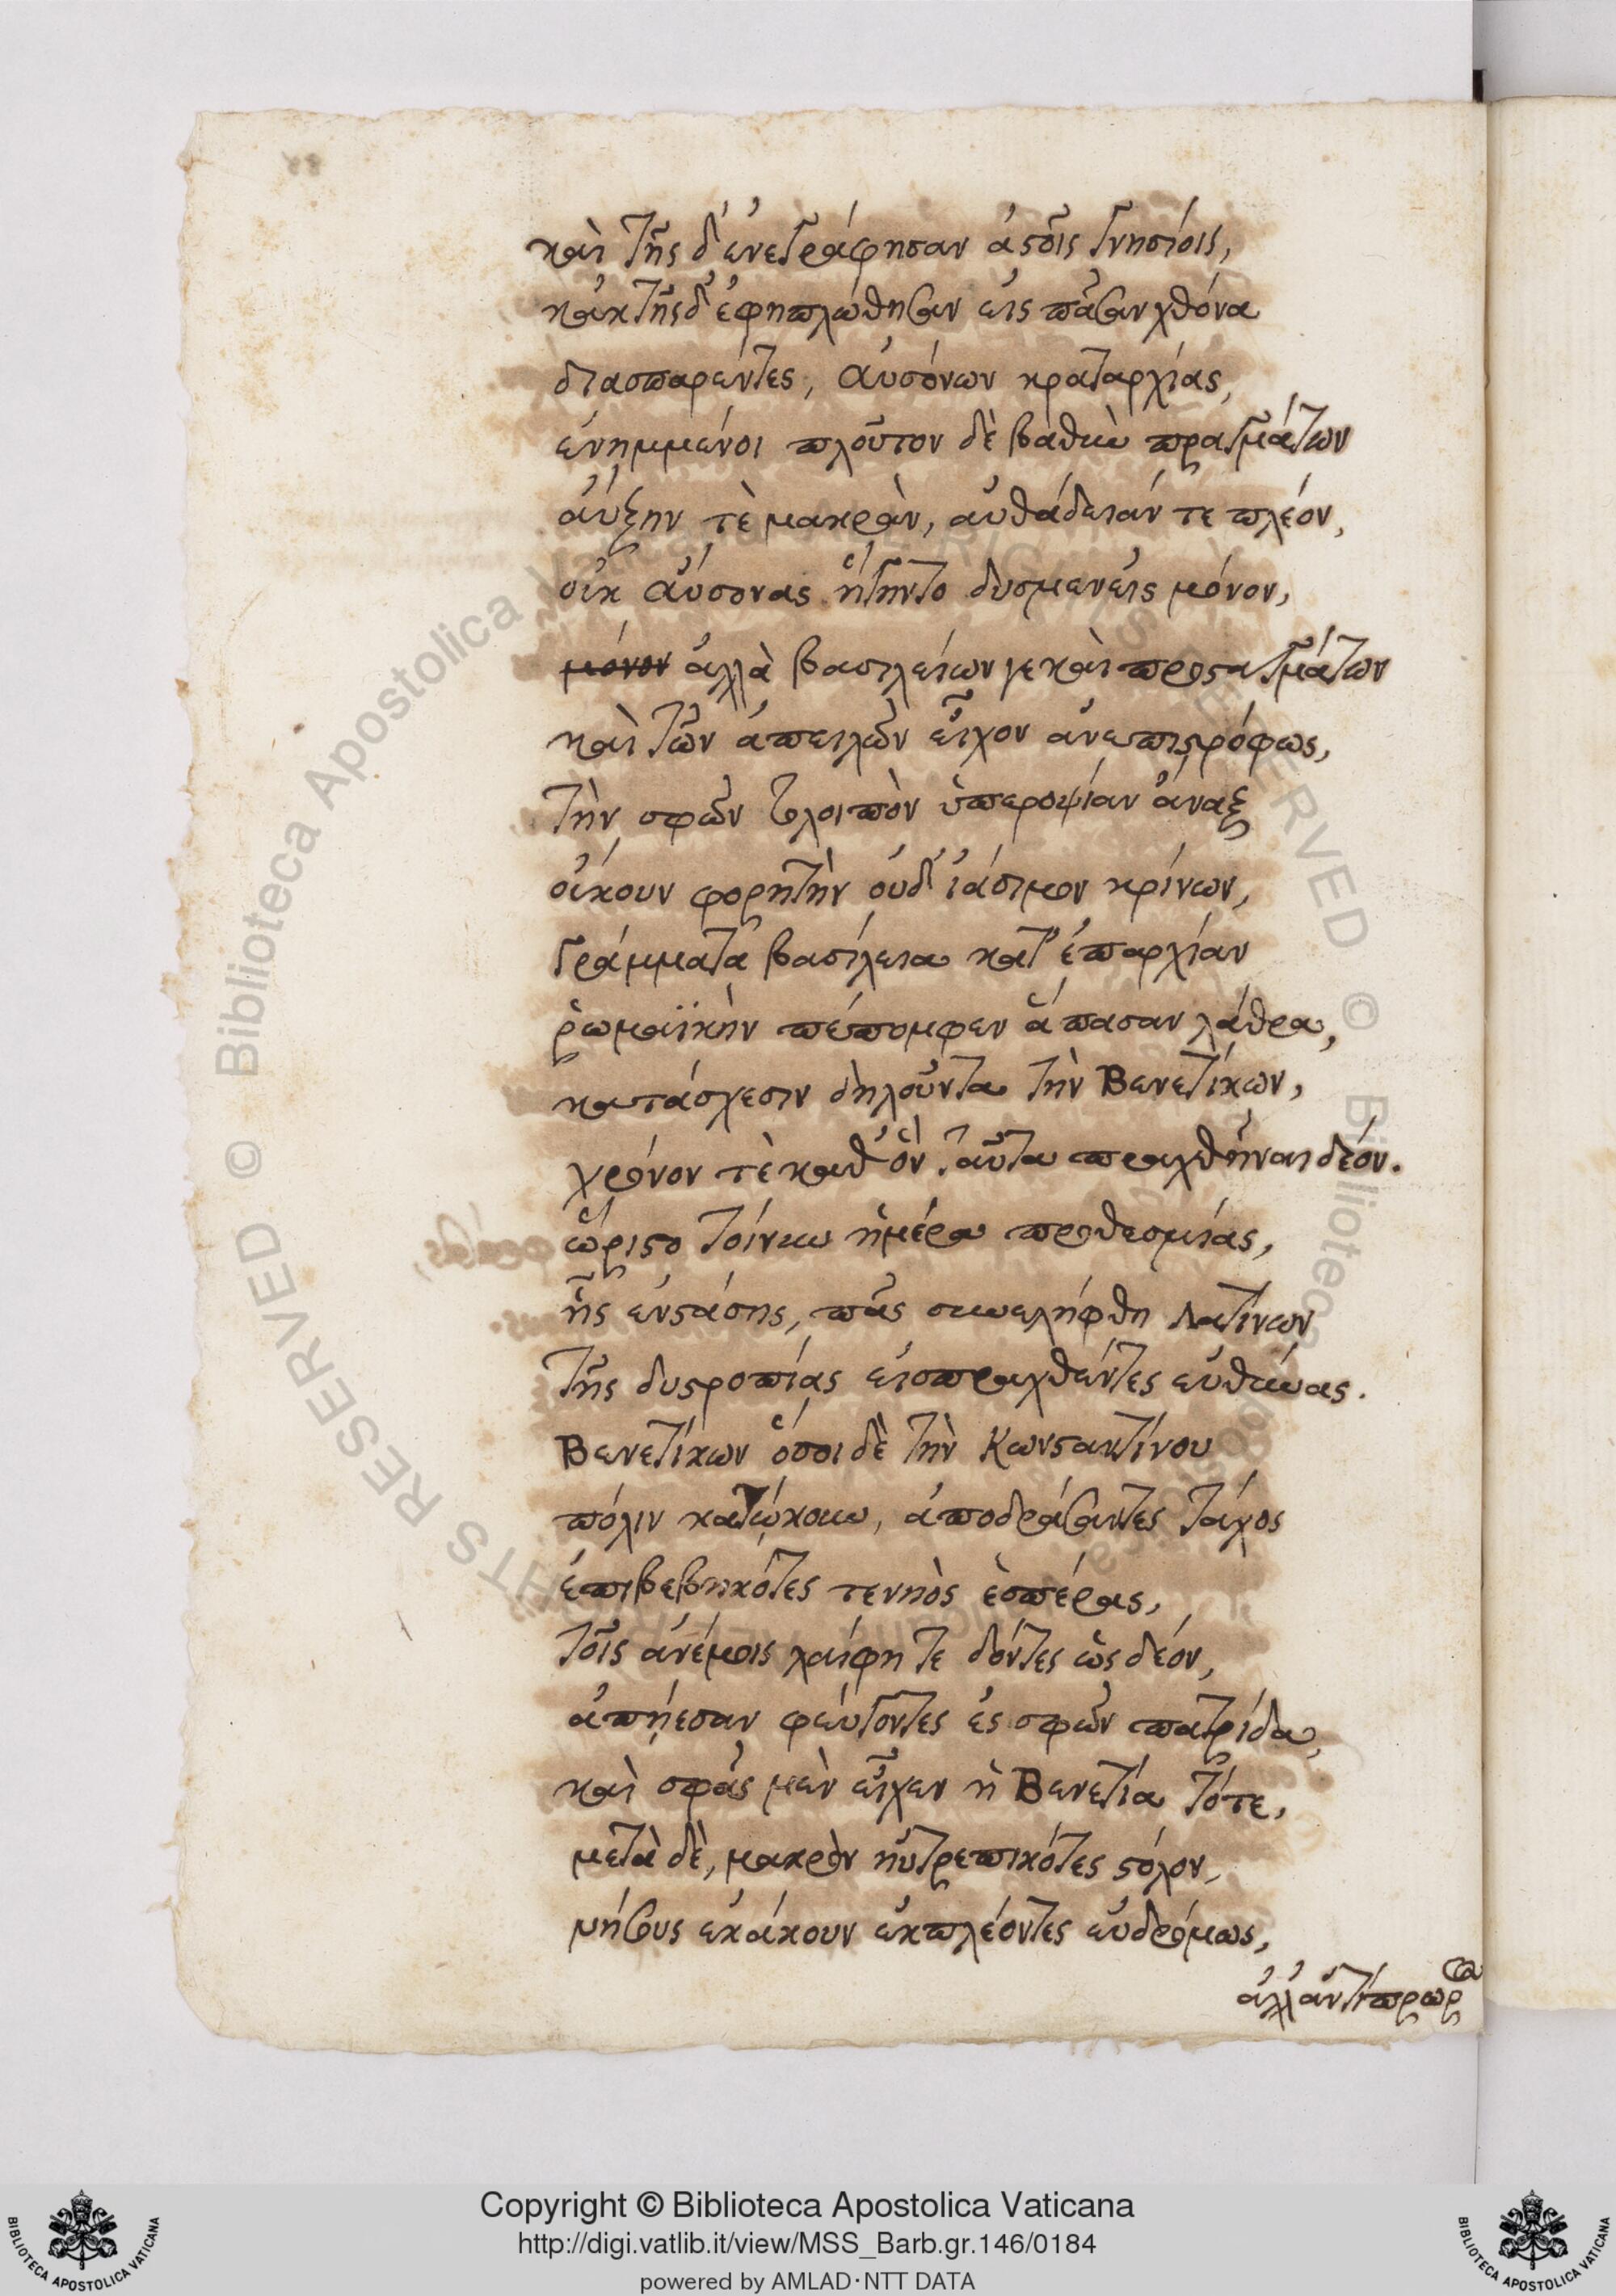 καὶ τῆς δ' ἐνεγράφησαν ἀστοῖς γνησίοις,
κἀκ τῆς δ' ἐφηπλώθησαν εἰς πᾶσαν χθόνα
διασπαρέντες, Αὐσόνων κραταρχίας,
ἐνημμένοι πλοῦτον δὲ βαθὺν πραγμάτων
αὔξην τὲ μακρὰν, αὐθάδειάν τε πλέον,
οὐκ Αὔσονας ἥγηντο δυσμενεῖς μόνον,
μόνον ἀλλὰ βασιλείων γε καὶ προσταγμάτων
καὶ τῶν ἀπειλῶν εἶχον ἀνεπιστρόφως,
τὴν σφῶν τολοιπὸν ὑπεροψίαν ἄναξ
οὔκουν φορητὴν οὐδ' ἰάσιμον κρίνων,
γράμματα βασίλεια κατ' ἐπαρχίαν
ῥωμαϊκὴν πέπομφεν ἅπασαν λάθρα,
κατάσχεσιν δηλοῦντα τὴν Βενετίκων,
χρόνον τὲ καθ' ὃν ταῦτα πραχθῆναι δέον.
ὥριστο τοίνυν ἡμέρα προθεσμίας,
ἧς ἐνστάσης, πᾶς συνελήφθη Λατίνων
τῆς δυστροπίας εἰσπραχθέντες εὐθύνας.
Βενετίκων ὅσοι δὲ τὴν Κωνσταντίνου
πόλιν κατῴκουν, ἀποδράσαντες τάχος
ἐπιβεβηκότες τε νηὸς ἑσπέρας,
τοῖς ἀνέμοις λαίφη τε δόντες ὡς δέον,
ἀπῄεσαν φεύγοντες ἐς σφῶν πατρίδα,
καὶ σφᾶς μὲν εἶχεν ἡ Βενετία τότε,
μετὰ δὲ, μακρὸν ηὐτρεπικότες στόλον,
νήσους ἐκάκουν ἐκπλέοντες εὐδρόμως,
ἀλλ' ἀντίπρωρ
Copyright © Biblioteca Apostolica Vaticana
http://digi.vatlib.it/view/MSS_Barb.gr.146/0184
powered by AMLAD·NTT DATA